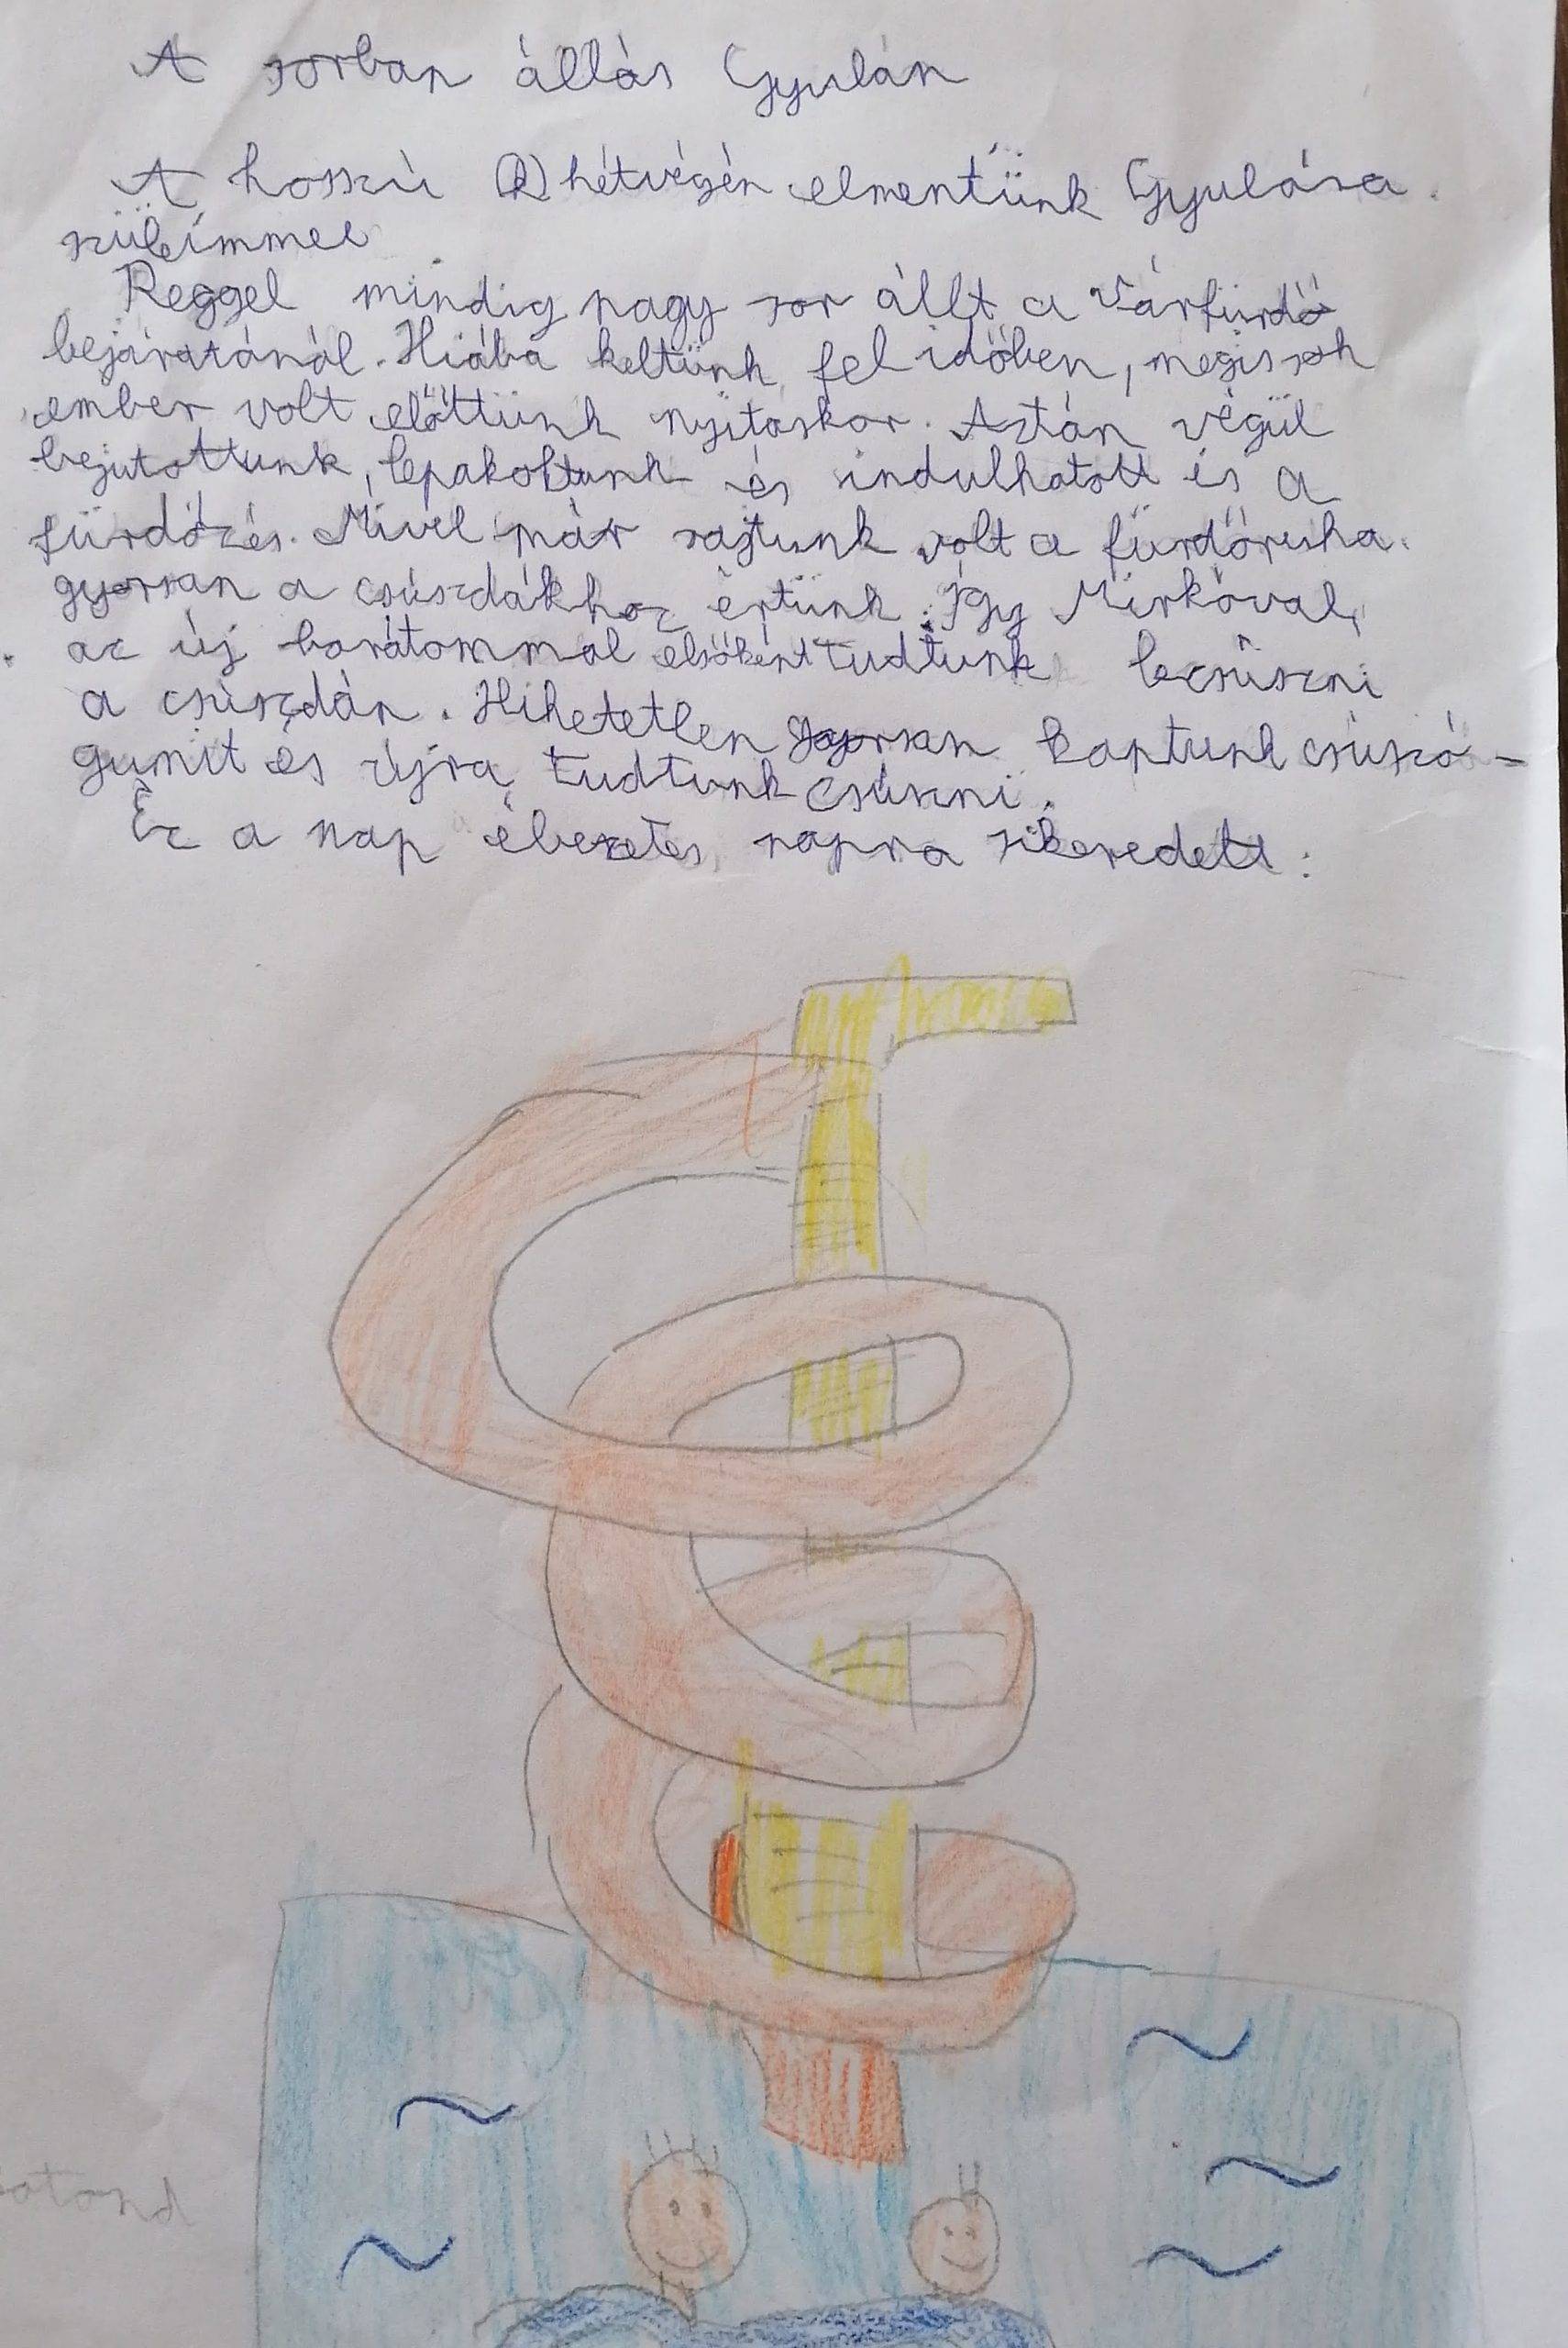 A sorban állás Gyulán
A hosszú hétvégén elmentünk Gyulára.
szüleimmel
Reggel mindig nagy sor állt a Várfürdő
bejáratánál. Hiába keltünk fel időben, mégis sok
ember volt előttünk nyitáskor. Aztán végül
bejutottunk, lepakoltunk és indulhatott is a
fürdőzés. Mivel már rajtunk volt a fürdőruha.
gyorsan a csúszdákhoz értünk. Így Mirkóval,
az új barátommal elsőként tudtunk lecsúszni
a csúszdán. Hihetetlen gyorsan kaptunk csúszó-
gumit és újra tudtunk csúszni.
Ez a nap élvezetes napra sikeredett.